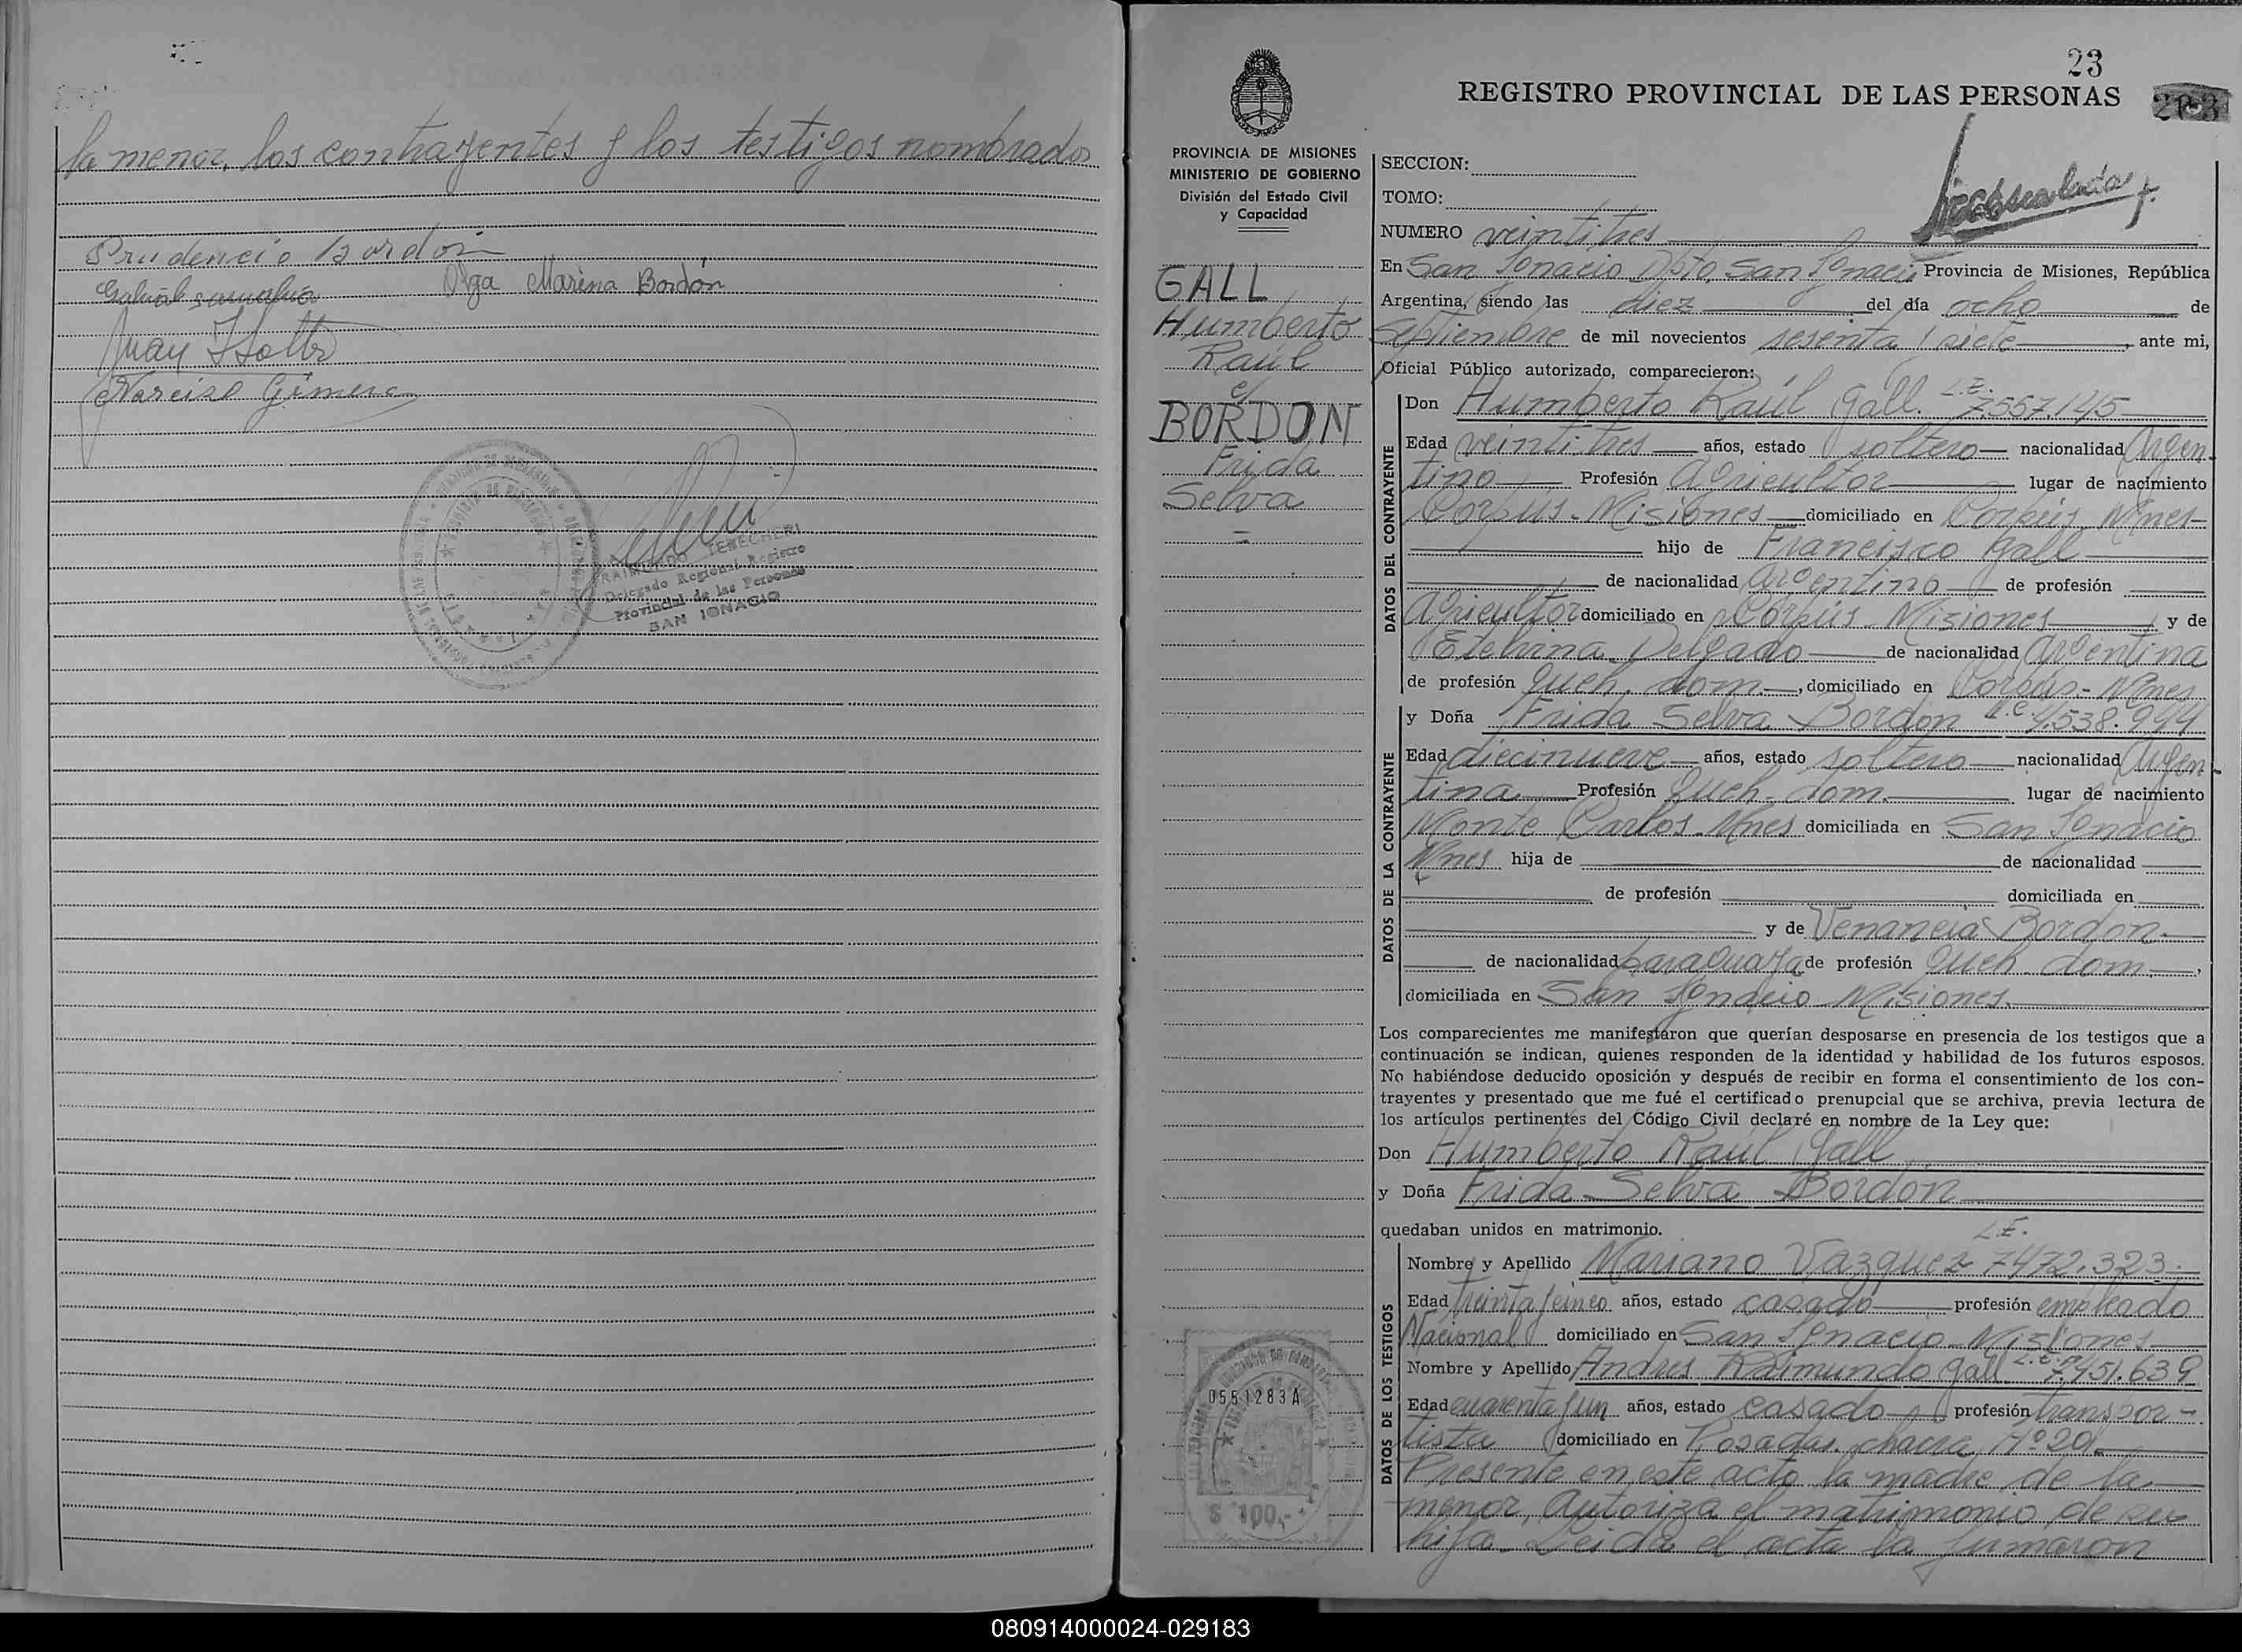 la menor, los contrayentes y los testigos nombrados
Prudencio Bordón
Olga Marina Bordón
Juan
Narciso Gimenez
RAIMUNDO
Delegado Regional Registro
Provincial de las Personas
SAN IGNACIO
23
REGISTRO PROVINCIAL DE LAS PERSONAS
203
PROVINCIA DE MISIONES
MINISTERIO DE GOBIERNO
División del Estado Civil
y Capacidad
GALL
Humberto
Raúl
c/
BORDON
Frida
Selva
0551283A
$ 100.-
SECCION:
TOMO:
NUMERO veintitres
En San Ignacio Dpto. San Ignacio Provincia de Misiones, República
Argentina, siendo las diez del día ocho de
Septiembre de mil novecientos sesenta y siete, ante mi,
Oficial Público autorizado, comparecieron:
DATOS DEL CONTRAYENTE
Don Humberto Raúl Gall. L.E. 7.557.145
Edad veintitres años, estado soltero nacionalidad Argen-
tino Profesión Agricultor lugar de nacimiento
Corpus - Misiones domiciliado en Corpus, Mnes-
hijo de Francisco Gall
de nacionalidad argentino de profesión
Agricultor domiciliado en Corpus - Misiones y de
Etelvina Delgado de nacionalidad argentina
de profesión Queh. dom., domiciliado en Corpus - Mnes
DATOS DE LA CONTRAYENTE
y Doña Frida Selva Bordon L.C 4.538.944
Edad diecinueve años, estado soltera nacionalidad Argen-
tina Profesión Queh. dom. lugar de nacimiento
Monte Carlos - Mnes domiciliada en San Ignacio
Mnes hija de de nacionalidad
de profesión domiciliada en
y de Venancia Bordon
de nacionalidad paraguaya de profesión Queh. dom.,
domiciliada en San Ignacio - Misiones.
Los comparecientes me manifestaron que querían desposarse en presencia de los testigos que a
continuación se indican, quienes responden de la identidad y habilidad de los futuros esposos.
No habiéndose deducido oposición y después de recibir en forma el consentimiento de los con-
trayentes y presentado que me fué el certificado prenupcial que se archiva, previa lectura de
los artículos pertinentes del Código Civil declaré en nombre de la Ley que:
Don Humberto Raúl Gall
y Doña Frida Selva Bordon
quedaban unidos en matrimonio.
DATOS DE LOS TESTIGOS
Nombre y Apellido Mariano Vazquez L.E. 7472.323.
Edad treinta y cinco años, estado casado profesión empleado
Nacional domiciliado en San Ignacio - Misiones
Nombre y Apellido Andres Raimundo Gall L.E. nº 7.451.639
Edad cuarenta y un años, estado casado profesión transpor-
tista domiciliado en Posadas. chacra Nº 20.
Presente en este acto la madre de la
menor, Autoriza el matrimonio de su
hija - Leida el acta la firmaron
080914000024-029183